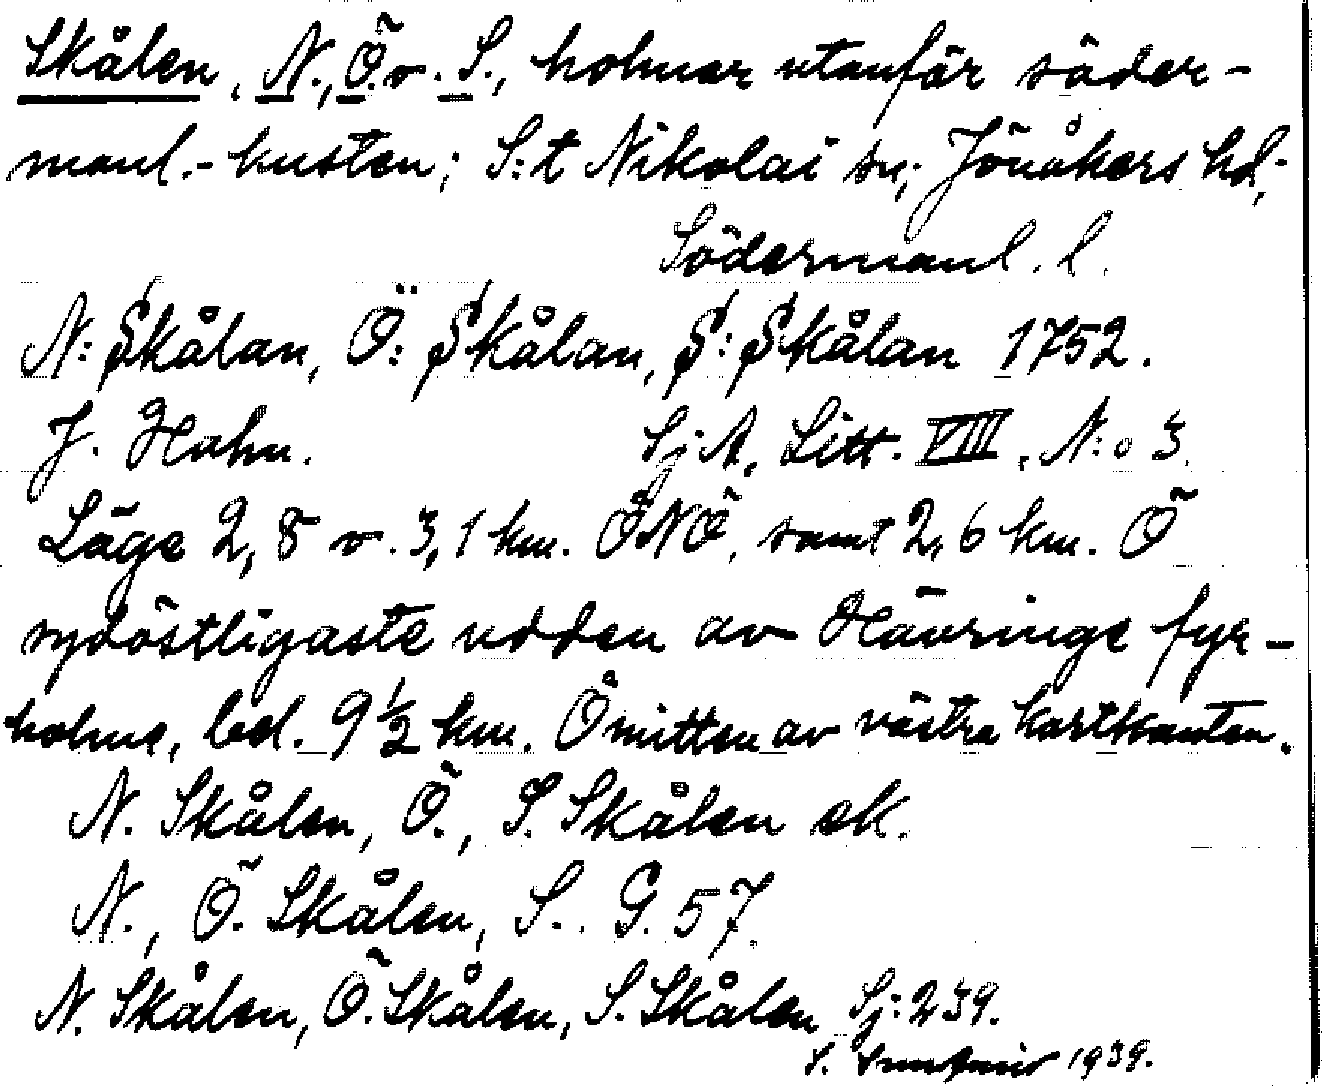 Skålen, N., Ö. o. S., holmar utanför söder-
manl.-kusten; S:t Nikolai sn; Jönåkers hd;
Södermanl. l.
N: Skålan, Ö: Skålan, S: Skålan 1752.
J. Hahn. SjA, Litt. VIII, N:o 3.
Läge 2,8 o. 3,1 km. ÖNÖ, samt 2,6 km. Ö
sydöstligaste udden av Hävringe fyr-
holme, bel. 9 1/2 km. Ö mitten av västra kartkanten.
N. Skålen, Ö., S. Skålen ek.
N., Ö. Skålen, S. G. 57.
N. Skålen, Ö. Skålen, S. Skålen Sj: 239.
S. 1939.